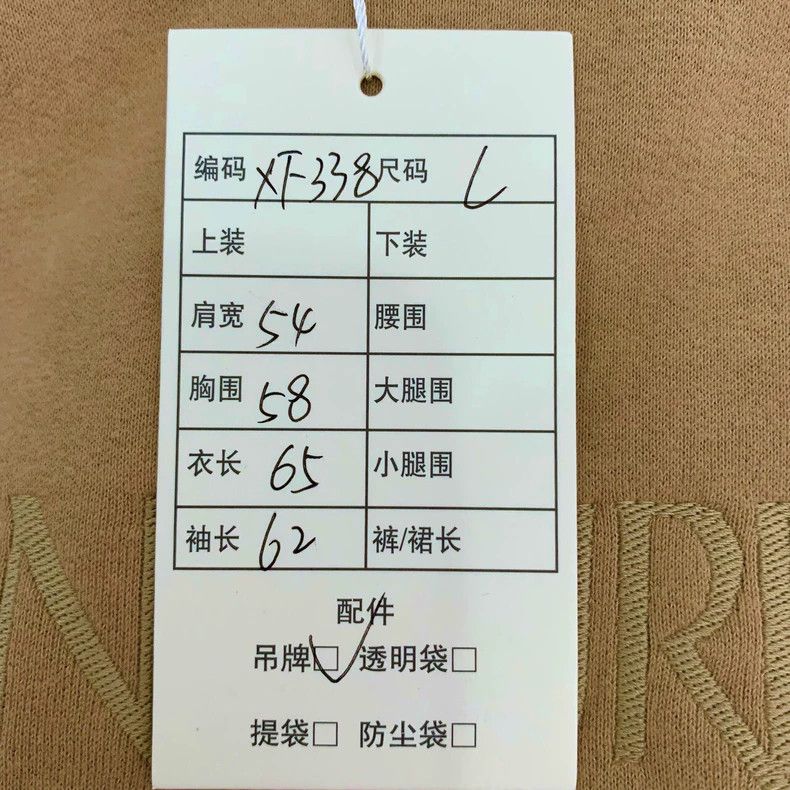 编码 XF-338 尺码 L
上装 下装
肩宽 54 腰围
胸围 58 大腿围
衣长 65 小腿围
袖长 62 裤/裙长
配件
吊牌☑ 透明袋□
提袋□ 防尘袋□